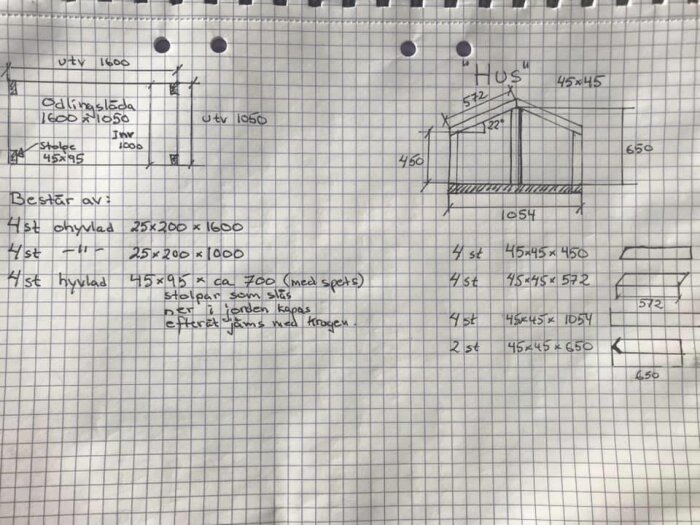 utv 1600
Odlingslåda
1600 x 1050
Inv
1000
utv 1050
Stolpe
45x95
Består av:
4st ohyvlad 25x200 x 1600
4 st -"- 25x200 x 1000
4 st hyvlad 45x95 x ca 700 (med spets)
stolpar som slås
ner i jorden kapas
efteråt jäms med kragen.
"HUS"
45x45
572
22°
450
650
1054
4 st 45x45 x 450
4 st 45x45 x 572
572
4 st 45x45 x 1054
2 st 45x45 x 650
650